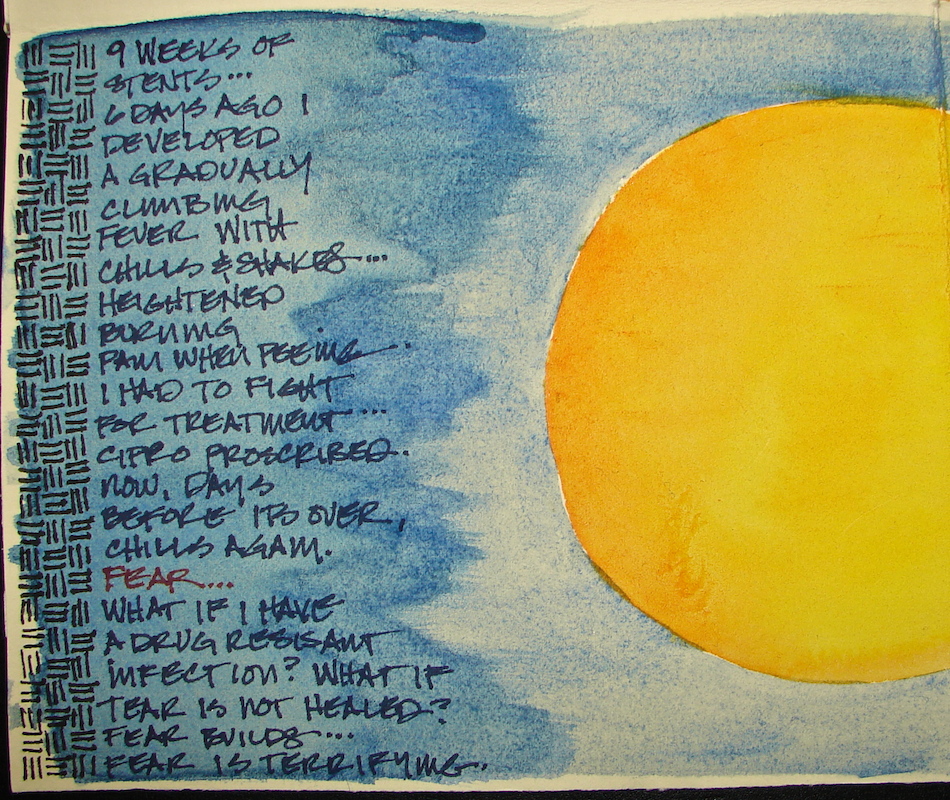 9 WEEKS OF
STENTS...
6 DAYS AGO I
DEVELOPED
A GRADUALLY
CLIMBING
FEVER WITH
CHILLS & SHAKES...
HEIGHTENED
BURNING
PAIN WHEN PEEING..
I HAD TO FIGHT
FOR TREATMENT...
CIPRO PROSCRIBED.
NOW, DAYS
BEFORE ITS OVER,
CHILLS AGAIN.
FEAR...
WHAT IF I HAVE
A DRUG RESISANT
INFECTION? WHAT IF
TEAR IS NOT HEALED?
FEAR BUILDS...
FEAR IS TERRIFYING.